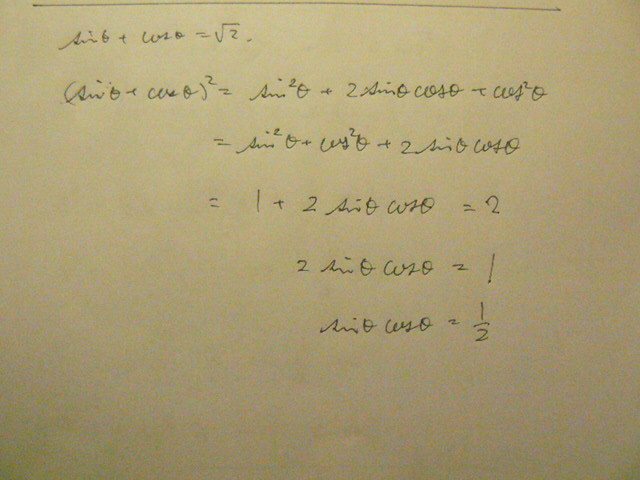 sinθ + cosθ = √2.
(sinθ + cosθ)² = sin²θ + 2sinθcosθ + cos²θ
= sin²θ + cos²θ + 2sinθcosθ
= 1 + 2sinθcosθ = 2
2sinθcosθ = 1
sinθcosθ = 1/2